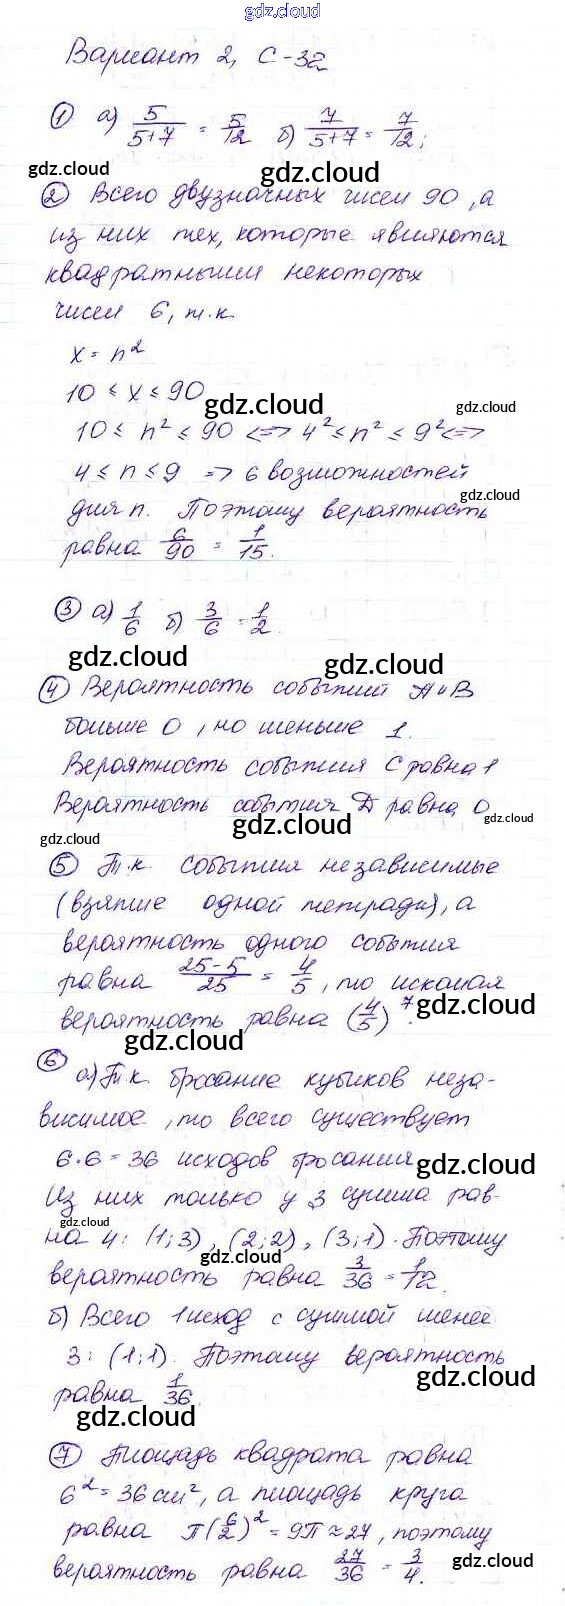 gdz.cloud
Вариант 2, С-32
① а) 5/(5+7) = 5/12 б) 7/(5+7) = 7/12;
gdz.cloud gdz.cloud
② Всего двузначных чисел 90, а
из них тех, которые являются
квадратными некоторых
чисел 6, т.к.
x = n²
10 ≤ x ≤ 90
gdz.cloud gdz.cloud
10 ≤ n² ≤ 90 <=> 4² ≤ n² ≤ 9² <=>
4 ≤ n ≤ 9 => 6 возможностей
gdz.cloud
для n. Поэтому вероятность
равна 6/90 = 1/15.
③ а) 1/6 б) 3/6 = 1/2.
gdz.cloud gdz.cloud
④ Вероятность событий А и В
больше 0, но меньше 1.
Вероятность события С равна 1
Вероятность события D равна 0
gdz.cloud gdz.cloud
gdz.cloud
⑤ Т.к. события независимые
(взятие одной тетради), а
вероятность одного события
равна (25-5)/25 = 4/5, то искомая
вероятность равна (4/5)⁷.
gdz.cloud gdz.cloud
⑥ а) Т.к. бросание кубиков неза-
висимое, то всего существует
6·6 = 36 исходов бросания
gdz.cloud
Из них только у 3 сумма рав-
gdz.cloud
на 4: (1;3), (2;2), (3;1). Поэтому
gdz.cloud
вероятность равна 3/36 = 1/12.
б) Всего 1 исход с суммой менее
3: (1;1). Поэтому вероятность
gdz.cloud
равна 1/36.
gdz.cloud
⑦ Площадь квадрата равна
6² = 36 см², а площадь круга
равна π(6/2)² = 9π ≈ 27, поэтому
вероятность равна 27/36 = 3/4.
gdz.cloud